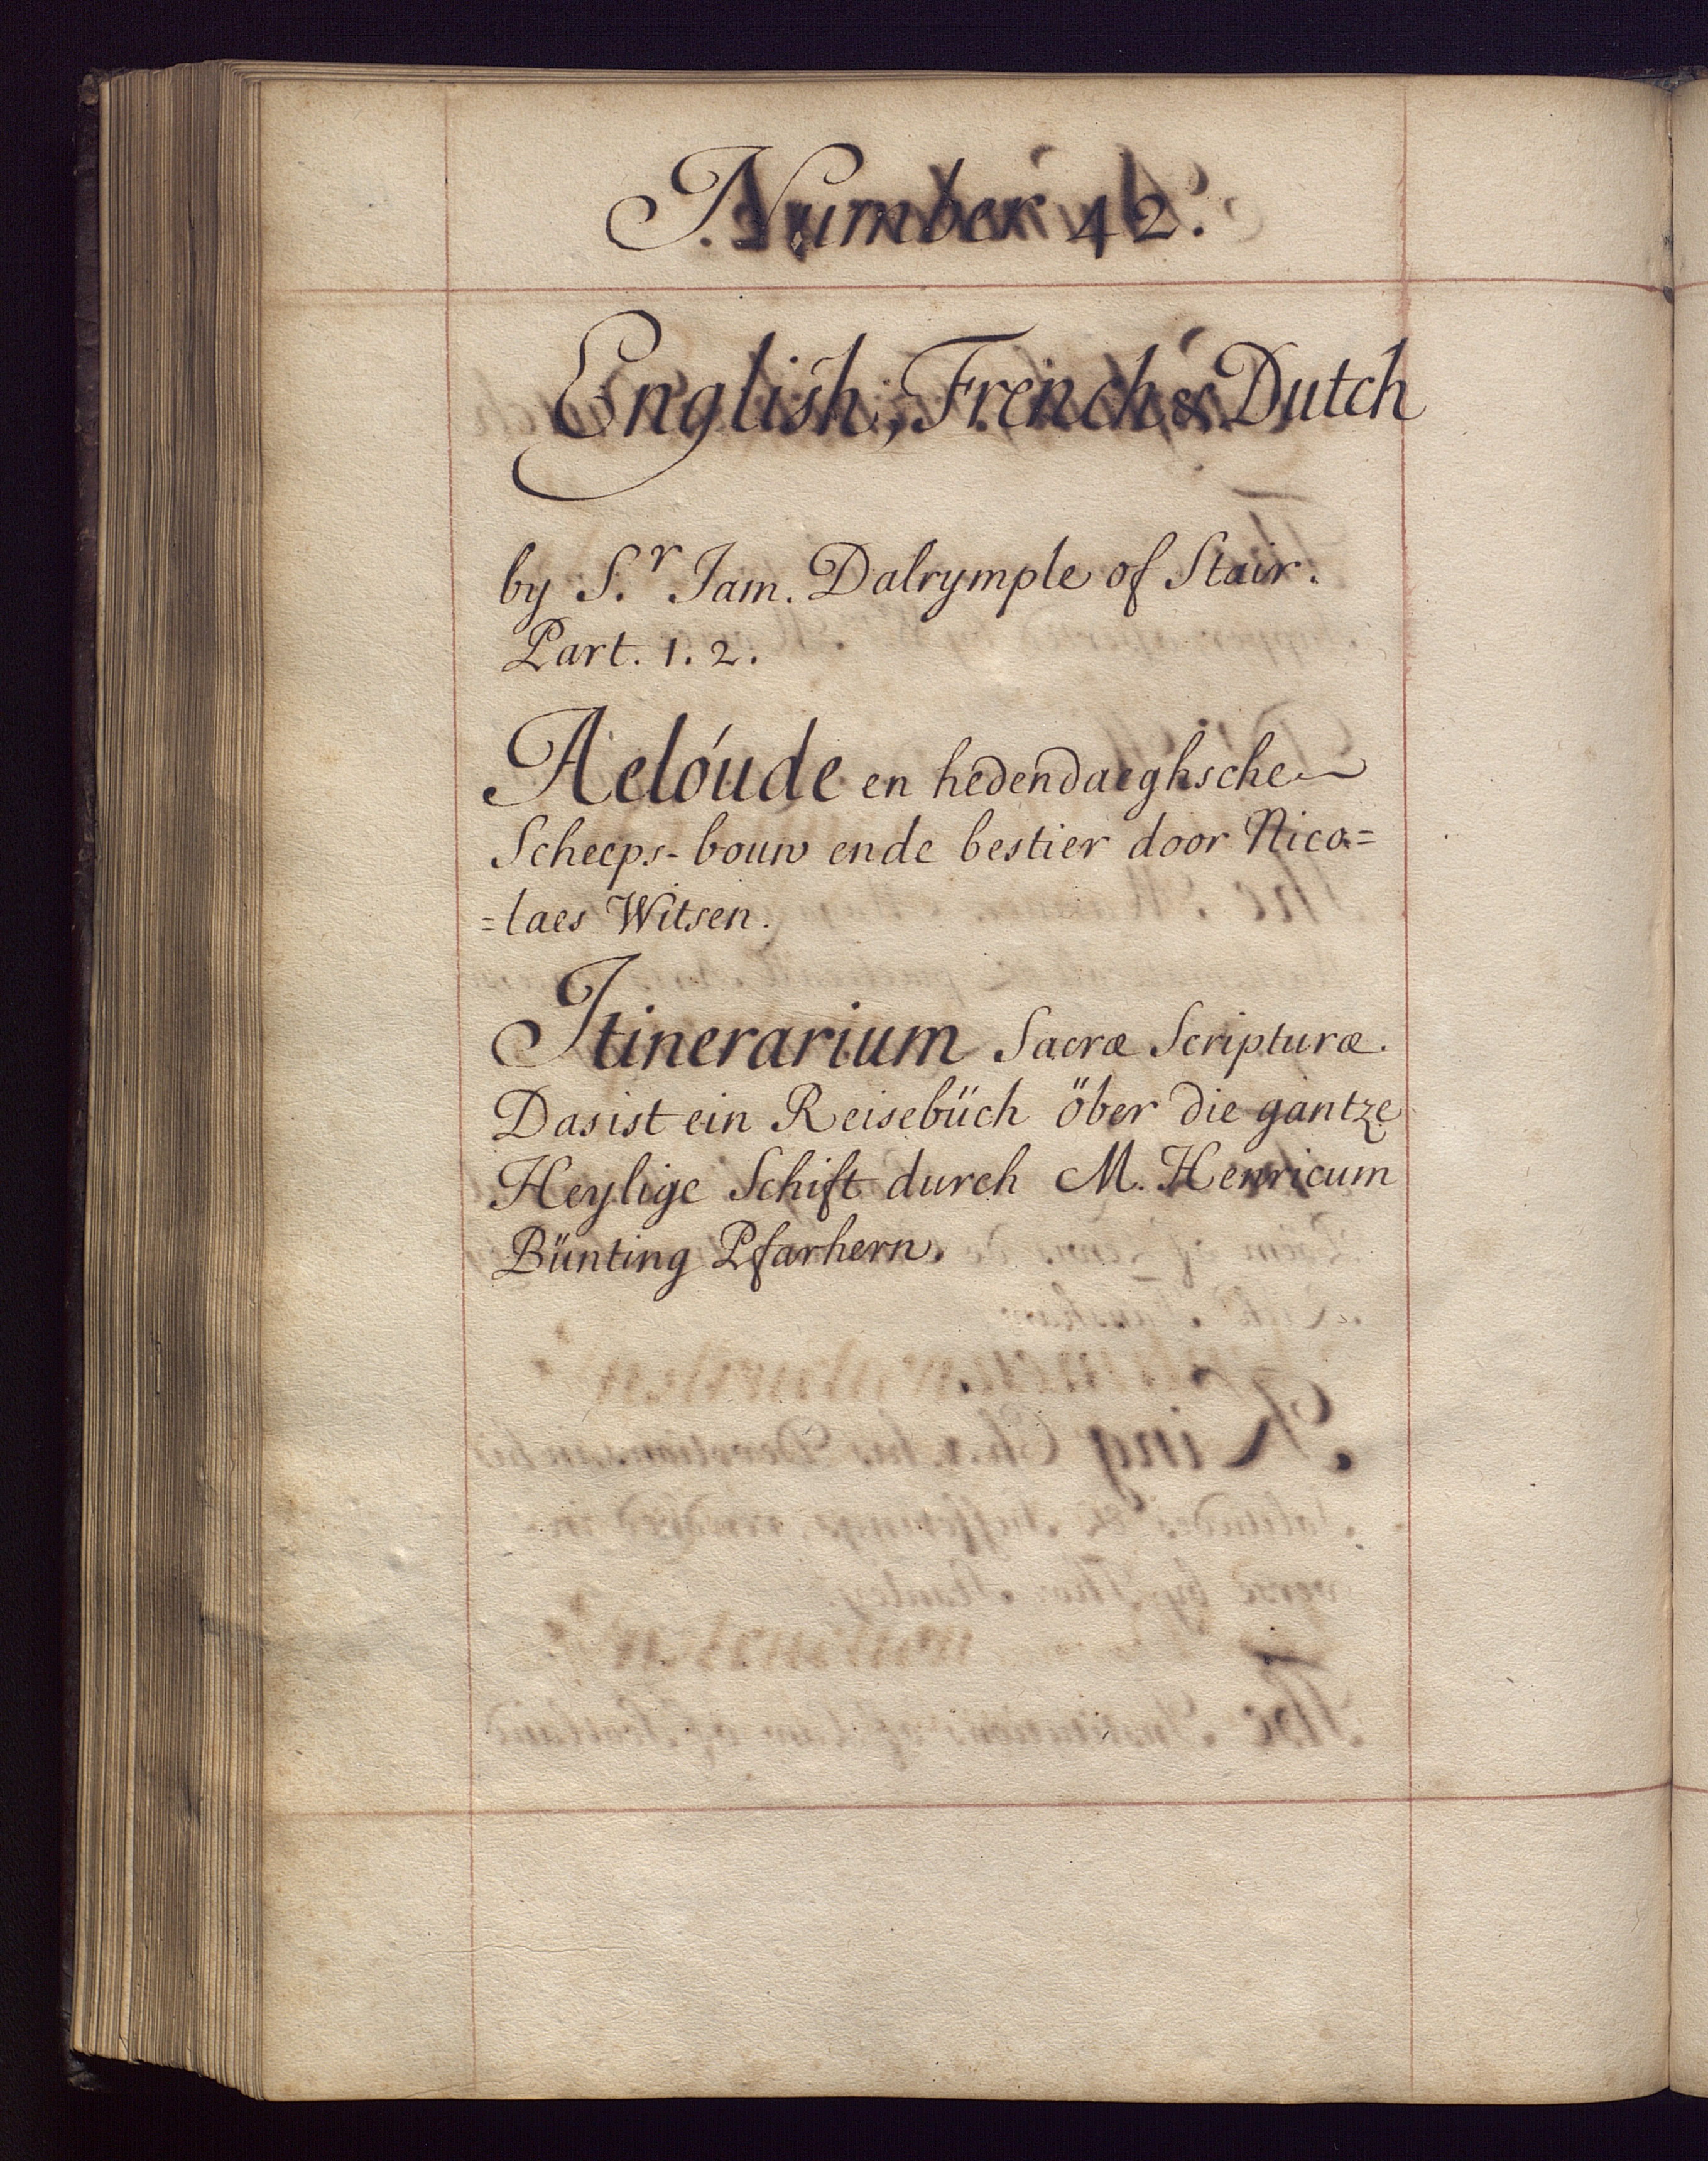 Number 42.
English, French & Dutch
by S.r Jam. Dalrymple of Stair.
Part. 1. 2.
Aeloúde en hedendaeghsche
Scheeps-bouw ende bestier door Nico=
=laes Witsen.
Itinerarium Sacræ Scripturæ.
Das ist ein Reisebüch öber die gantze
Heylige Schift durch M. Henricum
Bünting Pfarhern.